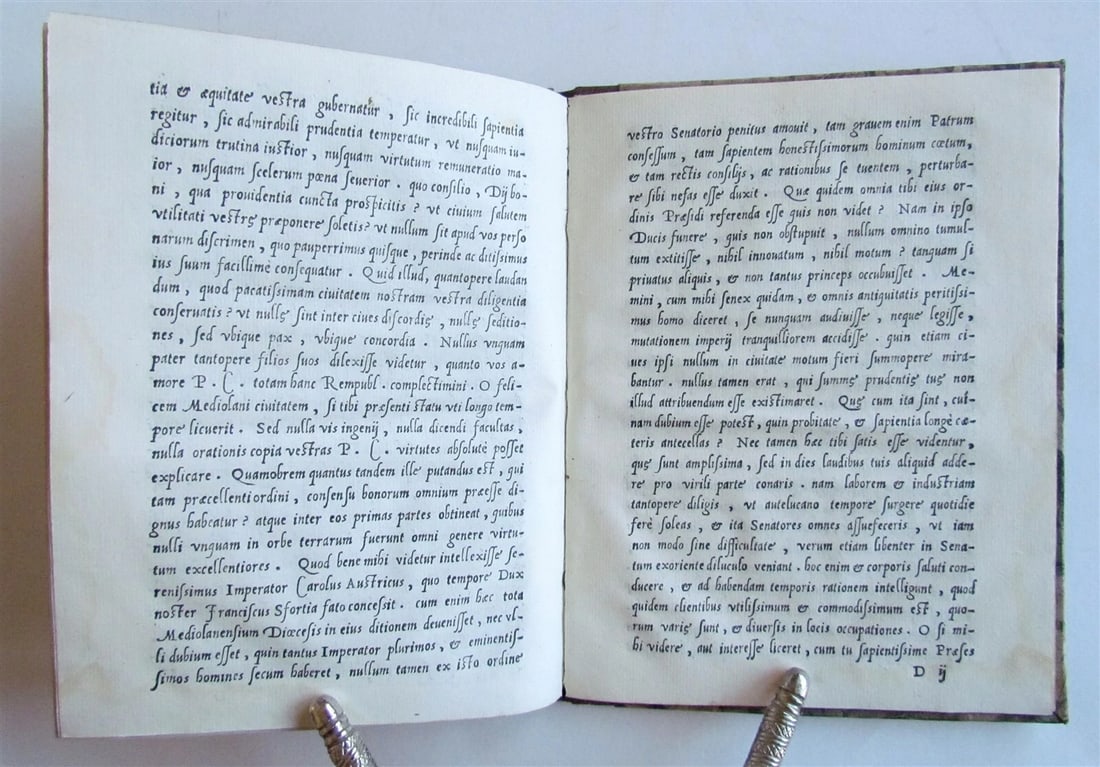 tia & æquitate vestra gubernatur, sic incredibili sapientia
regitur, sic admirabili prudentia temperatur, vt nusquam iu-
diciorum trutina iustior, nusquam virtutum remuneratio ma-
ior, nusquam scelerum pœna seuerior. quo consilio, Dij bo-
ni, qua prouidentia cuncta prospicitis? vt ciuium salutem
vtilitati vestrę præponere soletis? vt nullum sit apud vos perso
narum discrimen, quo pauperrimus quisque, perinde ac ditissimus
ius suum facillimè consequatur. Quid illud, quantopere laudan
dum, quod pacatissimam ciuitatem nostram vestra diligentia
conseruatis? vt nullę sint inter ciues discordię, nullę seditio-
nes, sed vbique pax, vbique concordia. Nullus vnquam
pater tantopere filios suos dilexisse videtur, quanto vos a-
more P. C. totam hanc Rempubl. complectimini. O feli-
cem Mediolani ciuitatem, si tibi præsenti statu vti longo tem-
pore licuerit. Sed nulla vis ingenij, nulla dicendi facultas,
nulla orationis copia vestras P. C. virtutes absolutè posset
explicare. Quamobrem quantus tandem ille putandus est, qui
tam præcellenti ordini, consensu bonorum omnium præesse di-
gnus habeatur? atque inter eos primas partes obtineat, quibus
nulli vnquam in orbe terrarum fuerunt omni genere virtu-
tum excellentiores. Quod bene mihi videtur intellexisse se-
renissimus Imperator Carolus Austricus, quo tempore Dux
noster Franciscus Sfortia fato concessit. cum enim hæc tota
Mediolanensium Diœcesis in eius ditionem deuenisset, nec vl-
li dubium esset, quin tantus Imperator plurimos, & eminentis-
simos homines secum haberet, nullum tamen ex isto ordine
vestro Senatorio penitus amouit, tam grauem enim Patrum
consessum, tam sapientem honestissimorum hominum cœtum,
& tam rectis consilijs, ac rationibus se tuentem, perturba-
re sibi nefas esse duxit. Quæ quidem omnia tibi eius or-
dinis Præsidi referenda esse quis non videt? Nam in ipso
Ducis funere, quis non obstupuit, nullum omnino tumul-
tum extitisse, nihil innouatum, nihil motum? tanquam si
priuatus aliquis, & non tantus princeps occubuisset. Me-
mini, cum mihi senex quidam, & omnis antiquitatis peritissi-
mus homo diceret, se nunquam audiuisse, neque legisse,
mutationem imperij tranquilliorem accidisse. quin etiam ci-
ues ipsi nullum in ciuitate motum fieri summopere mira-
bantur. nullus tamen erat, qui summę prudentię tuę non
illud attribuendum esse existimaret. Quę cum ita sint, cui-
nam dubium esse potest, quin probitate, & sapientia longè cæ-
teris antecellas? Nec tamen hæc tibi satis esse videntur,
quę sunt amplissima, sed in dies laudibus tuis aliquid adde-
re pro virili parte conaris. nam laborem & industriam
tantopere diligis, vt antelucano tempore surgere quotidie
ferè soleas, & ita Senatores omnes assuefeceris, vt iam
non modo sine difficultate, verum etiam libenter in Sena-
tum exoriente diluculo veniant. hoc enim & corporis saluti con-
ducere, & ad habendam temporis rationem intelligunt, quod
quidem clientibus vtilissimum & commodissimum est, quo-
rum varię sunt, & diuersis in locis occupationes. O si mi-
hi videre, aut interesse liceret, cum tu sapientissime Præses
D ij